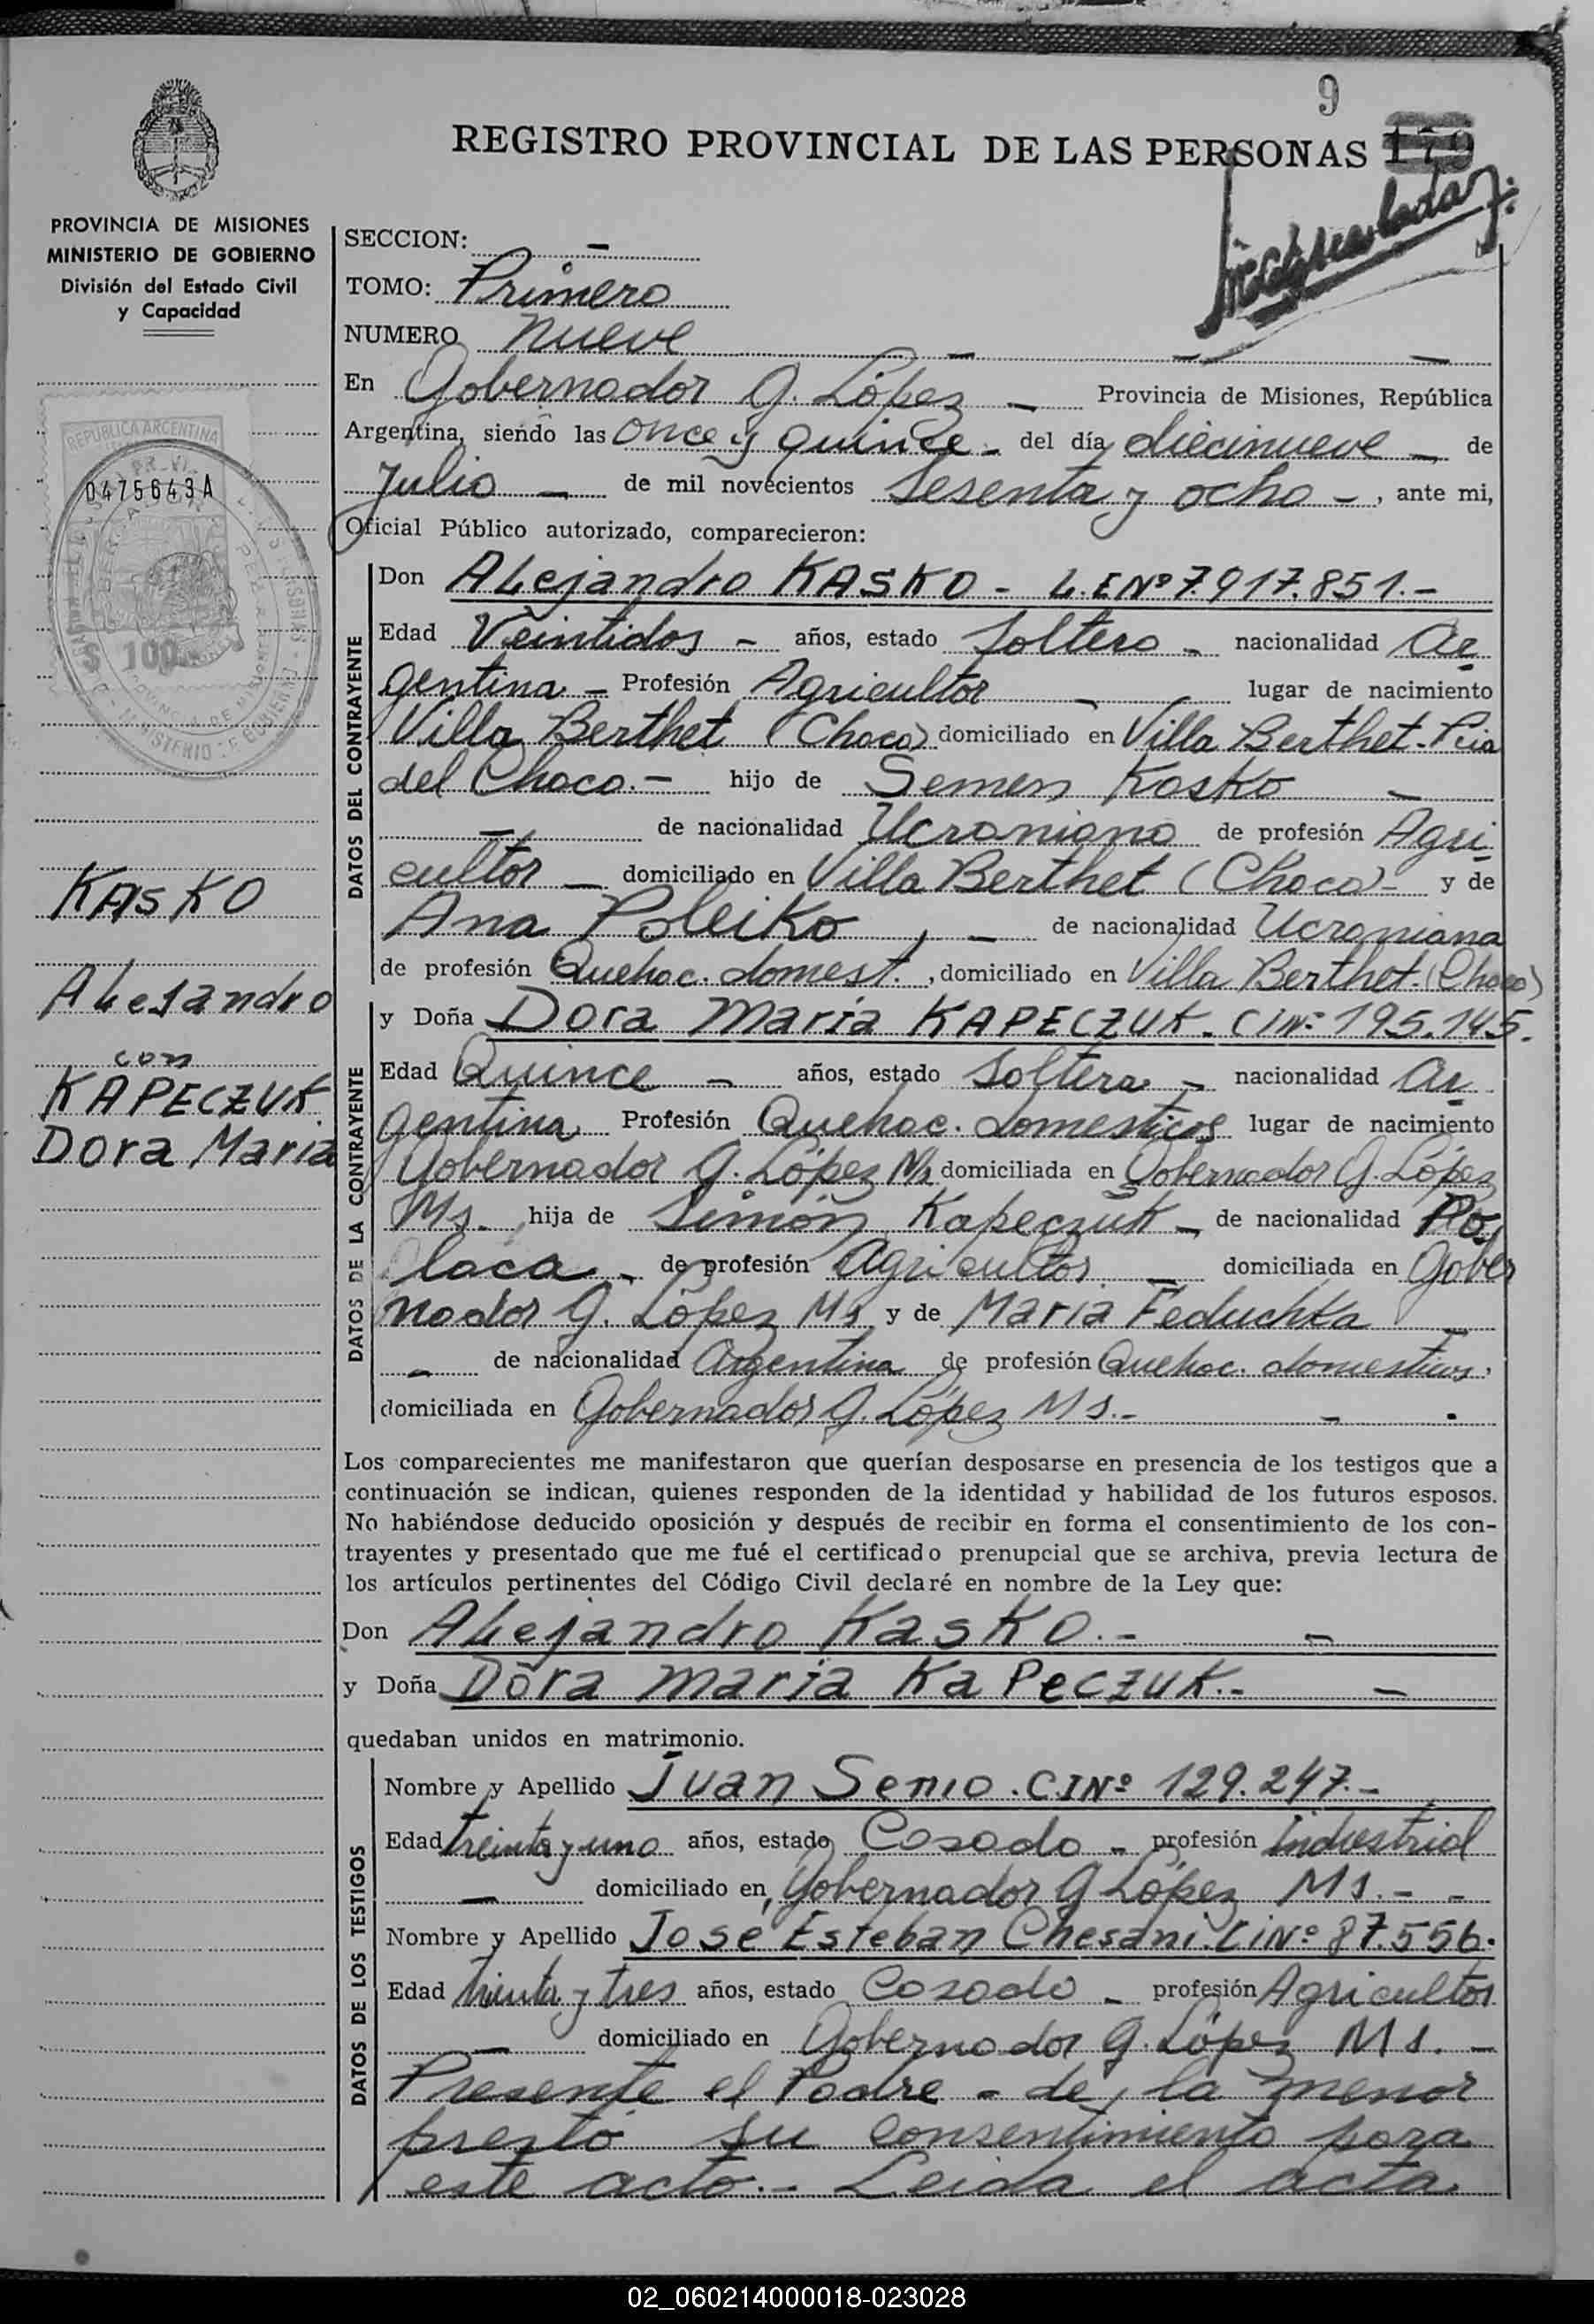 9
REGISTRO PROVINCIAL DE LAS PERSONAS 179
PROVINCIA DE MISIONES
MINISTERIO DE GOBIERNO
División del Estado Civil
y Capacidad
SECCION: –
TOMO: Primero
NUMERO nueve – – –
En Gobernador G. López – Provincia de Misiones, República
Argentina, siendo las once y quince - del día diecinueve – de
Julio – de mil novecientos sesenta y ocho – , ante mi,
Oficial Público autorizado, comparecieron:
REPUBLICA ARGENTINA
0475643A
$ 100
DATOS DEL CONTRAYENTE
Don ALejandro KASKO - L.E Nº 7.917.851.-
Edad Veintidos - años, estado Soltero - nacionalidad Ar
gentina - Profesión Agricultor - lugar de nacimiento
Villa Berthet (Chaco) domiciliado en Villa Berthet. Pcia
del Chaco.- hijo de Semen Kasko –
– de nacionalidad Ucraniano de profesión Agri
cultor – domiciliado en Villa Berthet (Chaco)- y de
Ana Poleiko , – de nacionalidad Ucraniana
de profesión Quehac. domest. , domiciliado en Villa Berthet. (Chaco)
KASKO
ALeJandro
con
KAPECZUK
Dora Maria
DATOS DE LA CONTRAYENTE
y Doña Dora Maria KAPECZUK. CINº 195.145.
Edad Quince - años, estado Soltera - nacionalidad Ar
gentina Profesión Quehac. domesticos lugar de nacimiento
Gobernador G. López Ms domiciliada en Gobernador G. López
Ms. , hija de Simón Kapeczuk – de nacionalidad Po
laca - de profesión Agricultor – domiciliada en Gober
nador G. López Ms y de Maria Feduchka –
- de nacionalidad Argentina de profesión Quehac. domesticos,
domiciliada en Gobernador G. López Ms.- - .
Los comparecientes me manifestaron que querían desposarse en presencia de los testigos que a
continuación se indican, quienes responden de la identidad y habilidad de los futuros esposos.
No habiéndose deducido oposición y después de recibir en forma el consentimiento de los con-
trayentes y presentado que me fué el certificado prenupcial que se archiva, previa lectura de
los artículos pertinentes del Código Civil declaré en nombre de la Ley que:
Don ALejandro KasKO.- –
y Doña Dora maria KaPeczuk.- –
quedaban unidos en matrimonio.
DATOS DE LOS TESTIGOS
Nombre y Apellido Juan Senio. C.I Nº 129.247.-
Edad treinta y uno años, estado Casado - profesión Industrial
– domiciliado en, Gobernador G López Ms.- -
Nombre y Apellido José Esteban Chesani. CiNº 87.556.
Edad treinta y tres años, estado Casado - profesión Agricultor
– domiciliado en Gobernador G. López Ms. –
Presente el Padre - de la menor
prestó su consentimiento para
este acto.- Leida el acta
02_060214000018-023028